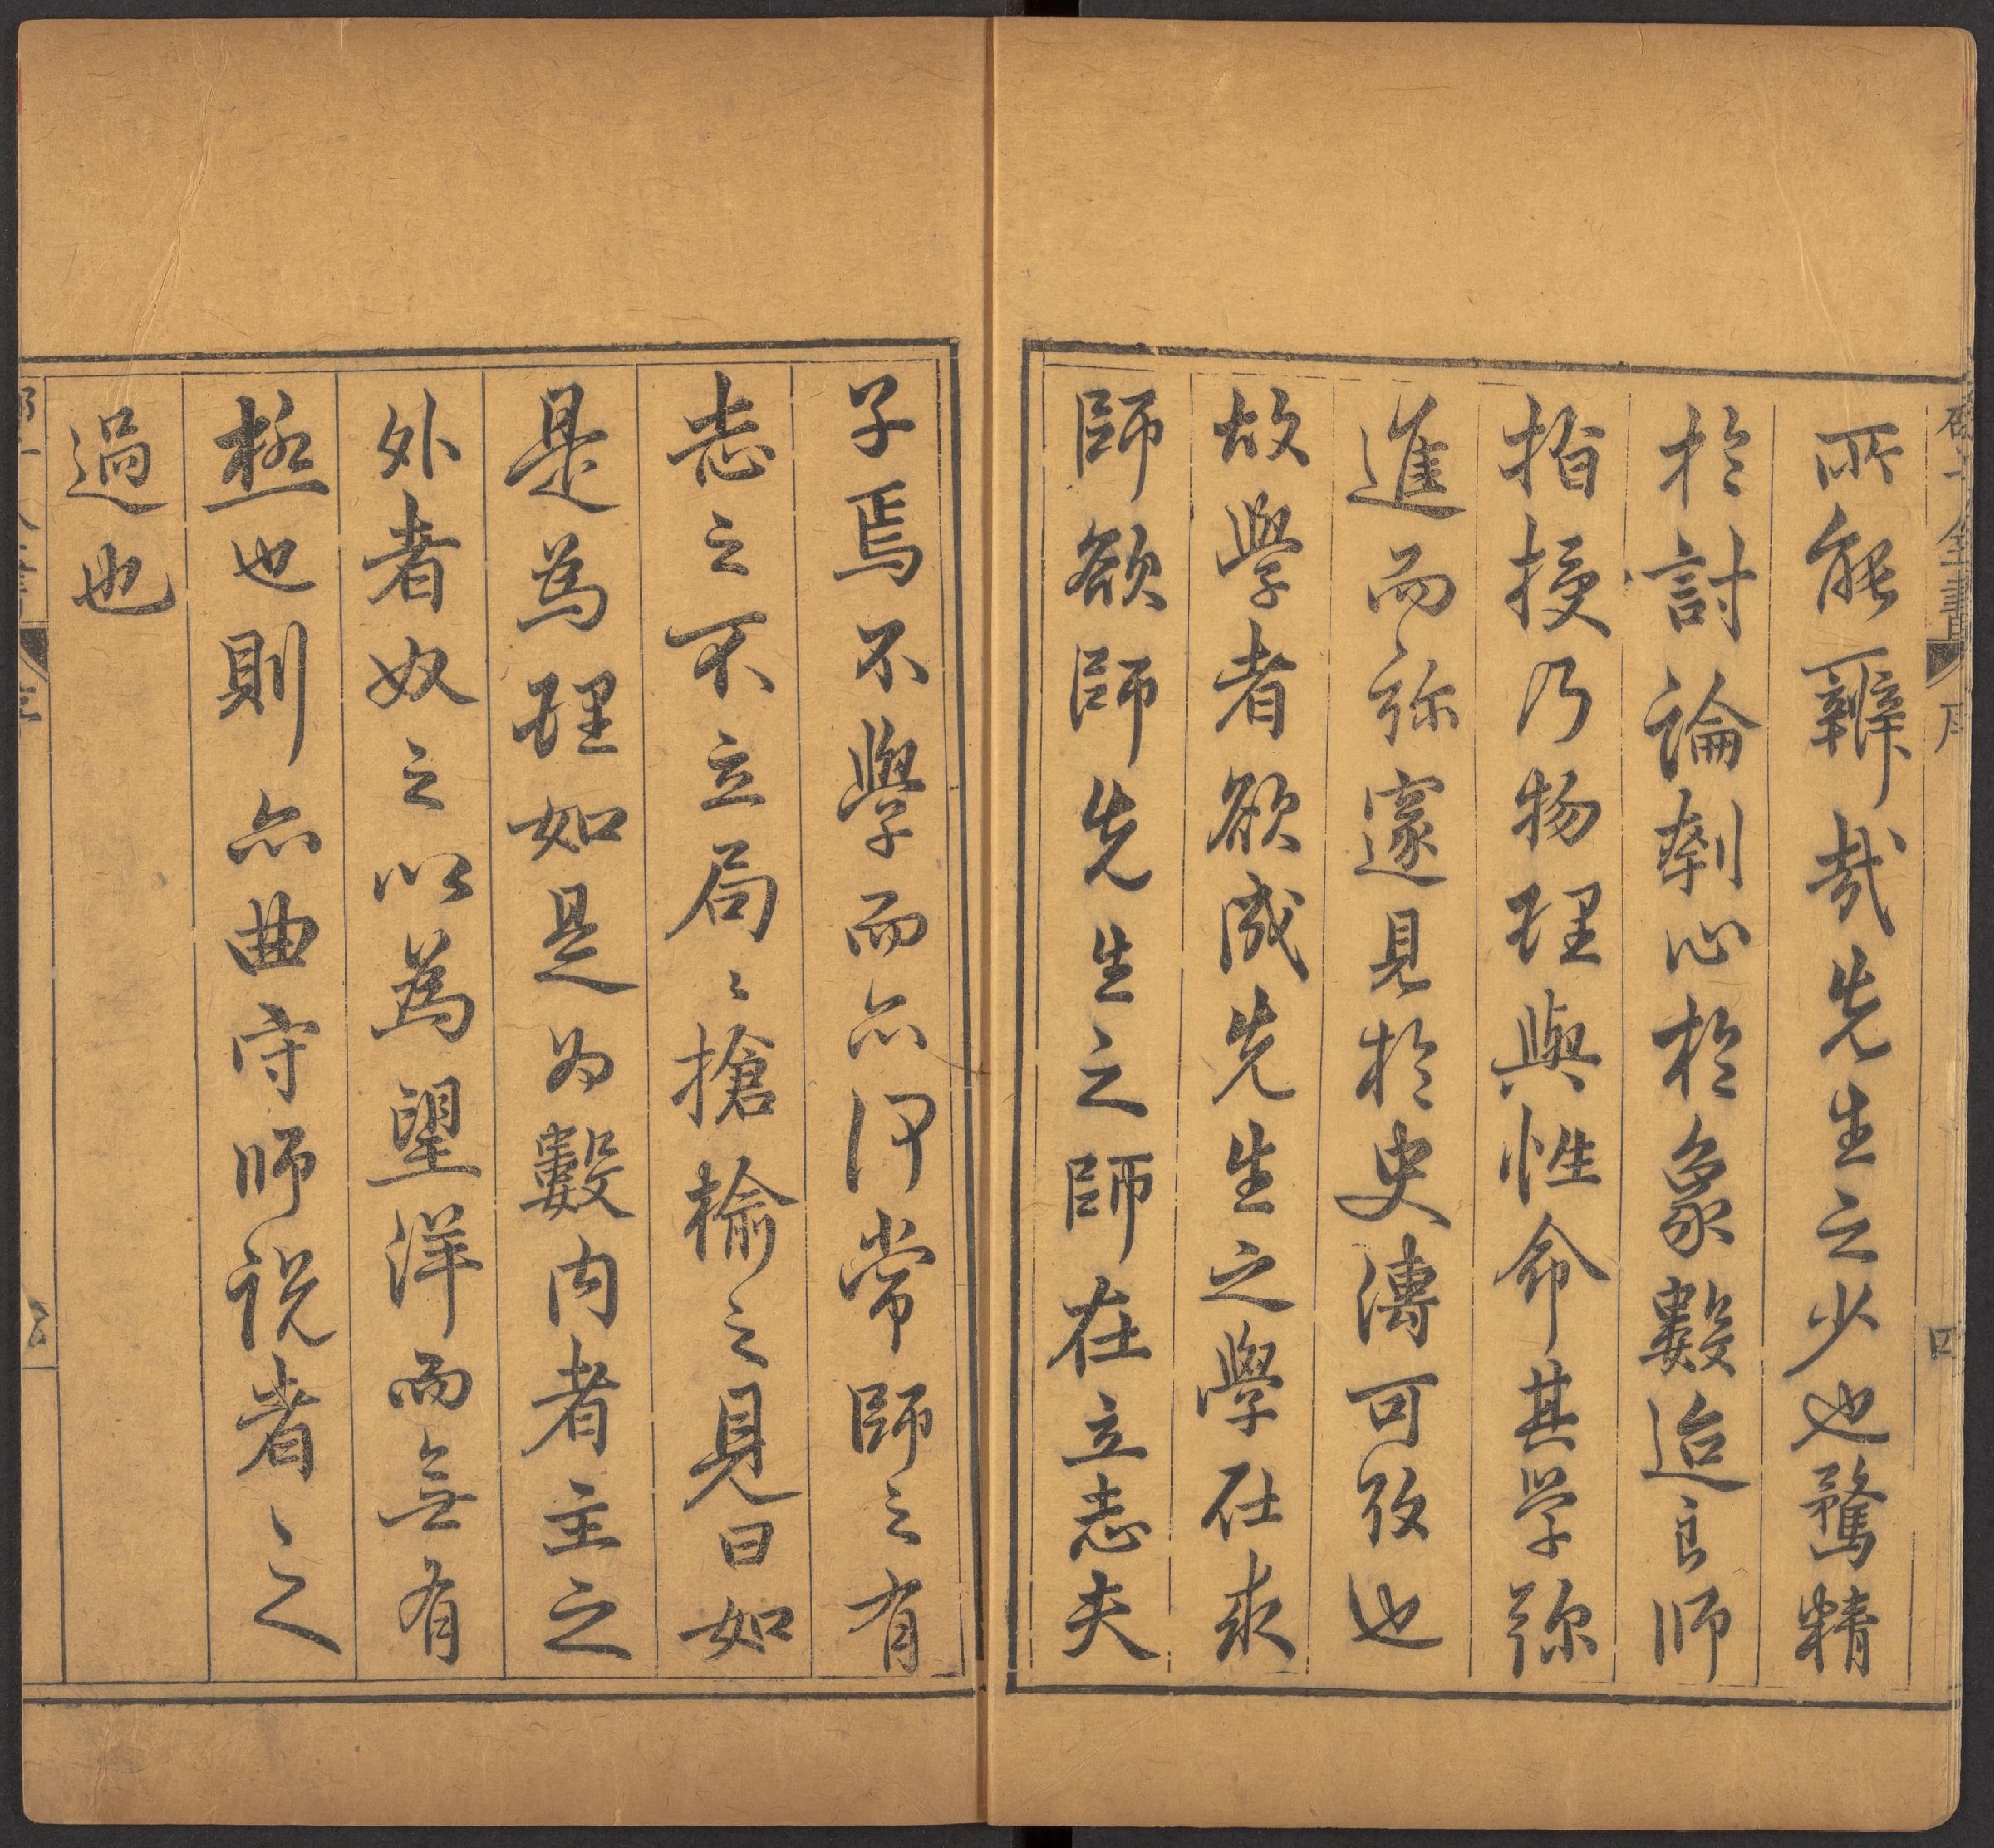 所能辯哉先生之少也騖精
於討論刳心於象數迨良師
指授乃物理與性命其学弥
進而弥邃見於史傳可攷也
故學者欲成先生之學在求
師欲師先生之師在立志夫
子焉不學而亦何常師之有
志之不立局〻搶榆之見曰如
是為理如是为數内者主之
外者奴之以為望洋而無有
極也則亦曲守师説者之
過也